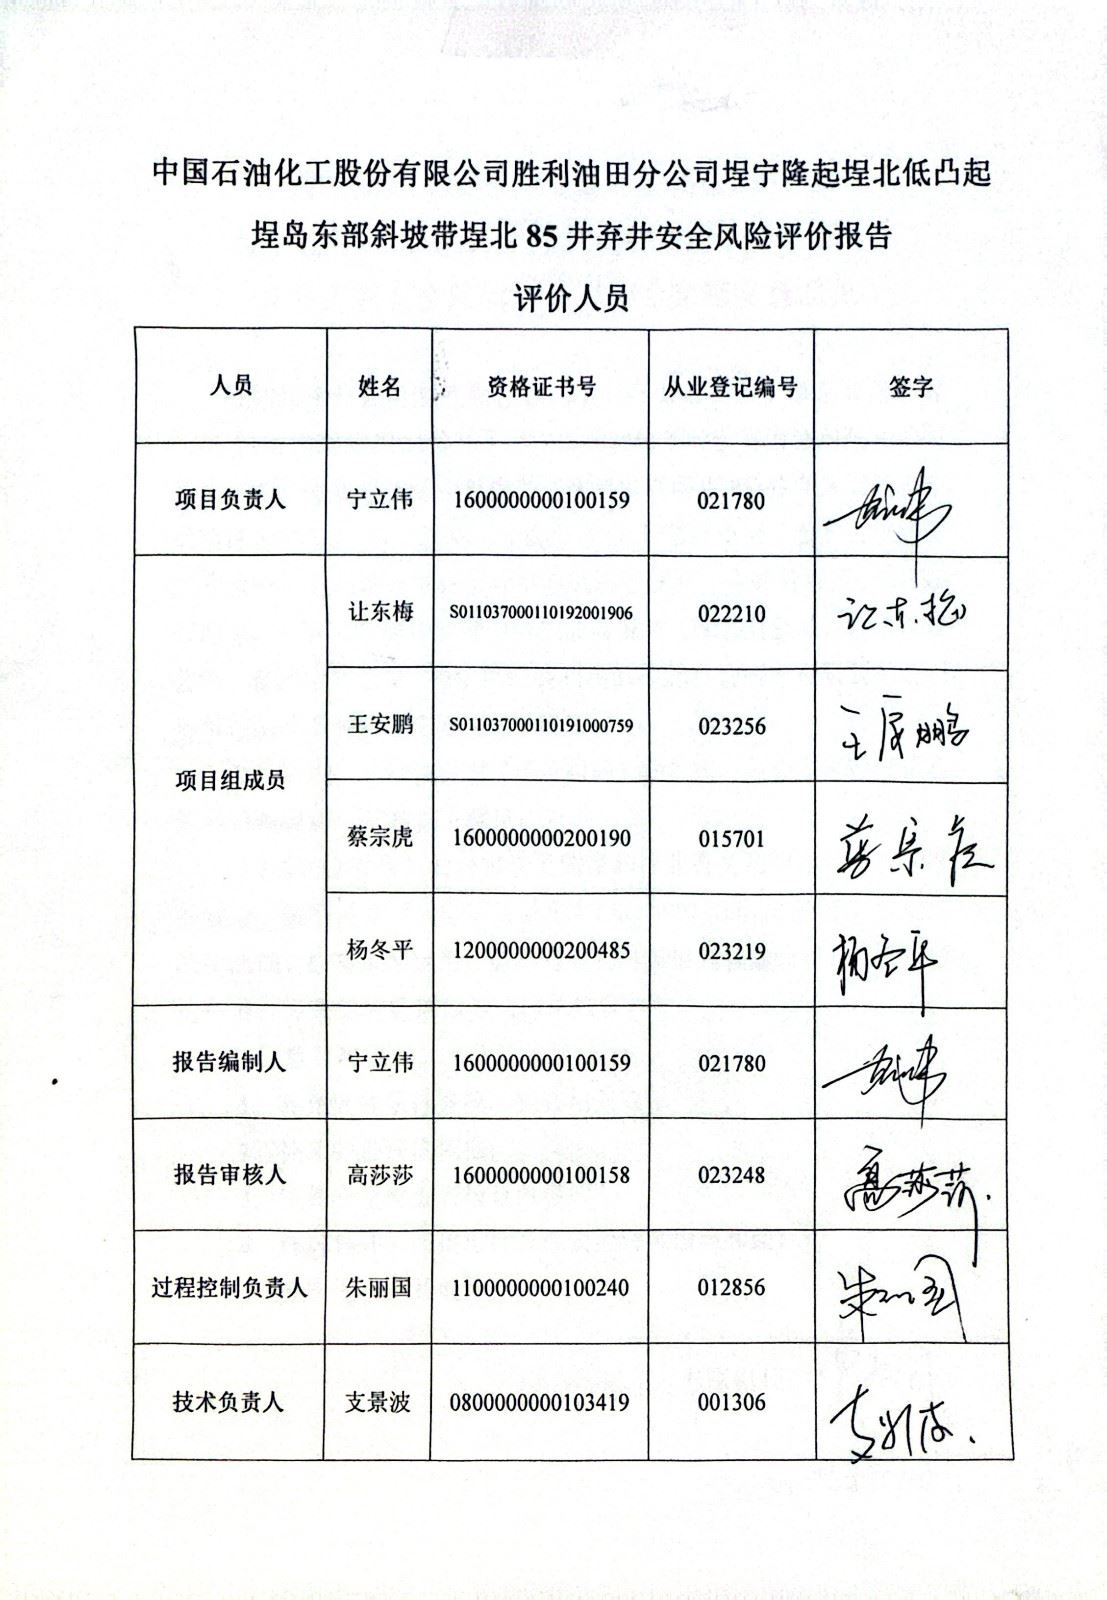 中国石油化工股份有限公司胜利油田分公司埕宁隆起埕北低凸起
埕岛东部斜坡带埕北 85 井弃井安全风险评价报告
评价人员
人员 姓名 资格证书号 从业登记编号 签字
项目负责人 宁立伟 1600000000100159 021780
项目组成员
让东梅 S011037000110192001906 022210 让东梅
王安鹏 S011037000110191000759 023256 王安鹏
蔡宗虎 1600000000200190 015701 蔡宗虎
杨冬平 1200000000200485 023219 杨冬平
报告编制人 宁立伟 1600000000100159 021780
报告审核人 高莎莎 1600000000100158 023248 高莎莎
过程控制负责人 朱丽国 1100000000100240 012856 朱丽国
技术负责人 支景波 0800000000103419 001306 支景波